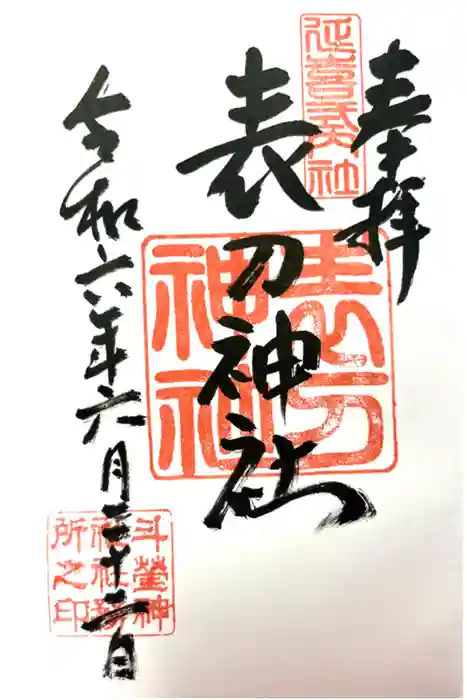 奉拝
延喜式内社
表刀神社
表刀神社
令和六年六月二十二日
斗瑩神
社社務
所之印